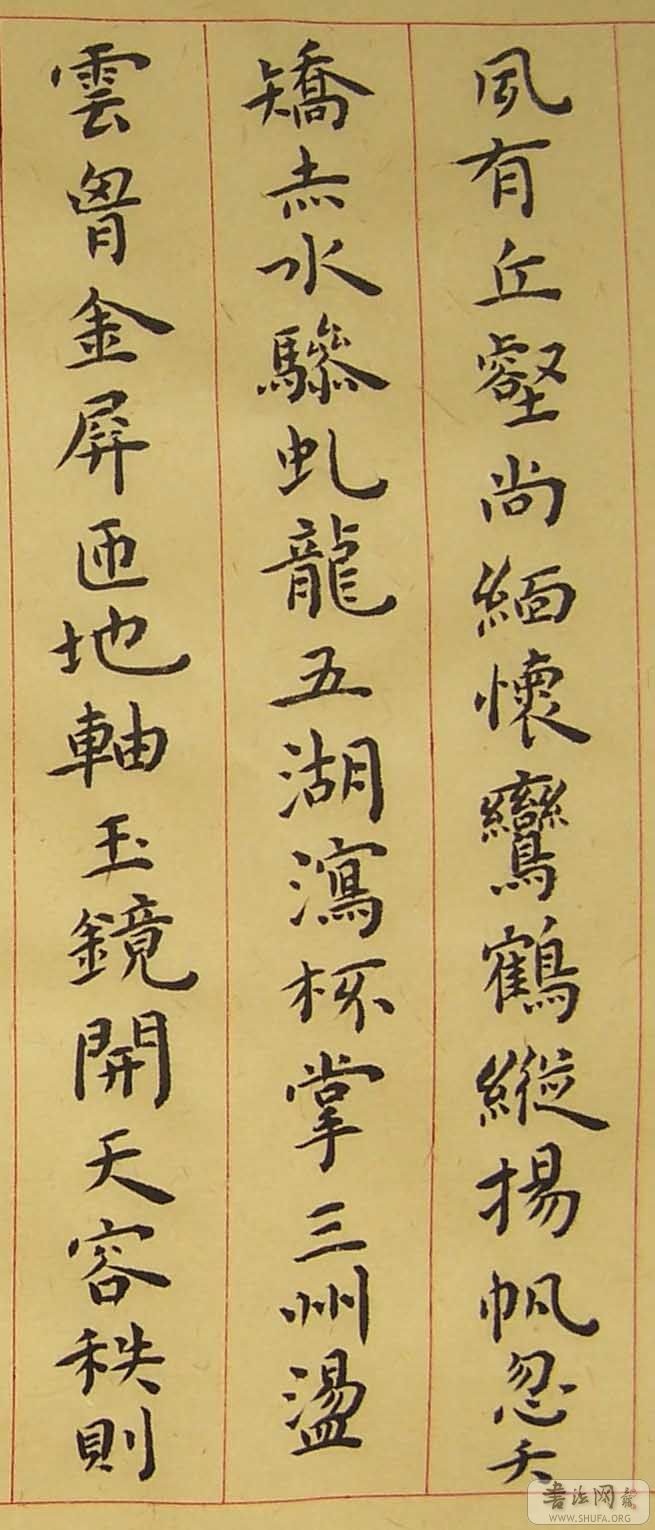 風有丘壑尚緬懷鸞鶴縱揚帆忽天
矯赤水驂虬龍五湖瀉杯掌三州盪
雲胷金屏匝地軸玉鏡開天容秩則
書法网
WWW.SHUFA.ORG